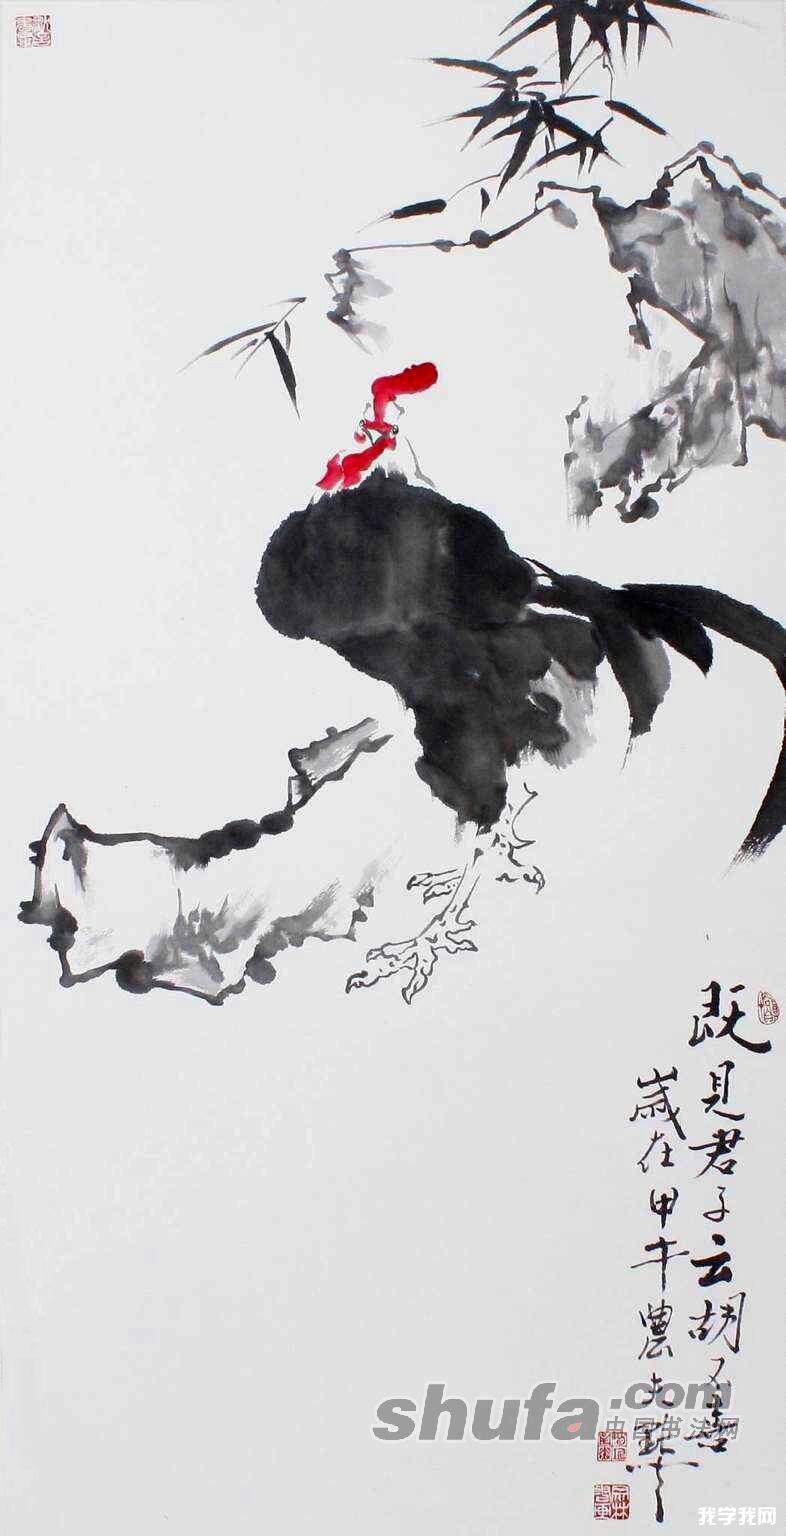 既見君子云胡不喜
歲在甲午農夫
shufa.com
中国书法网
我学我网